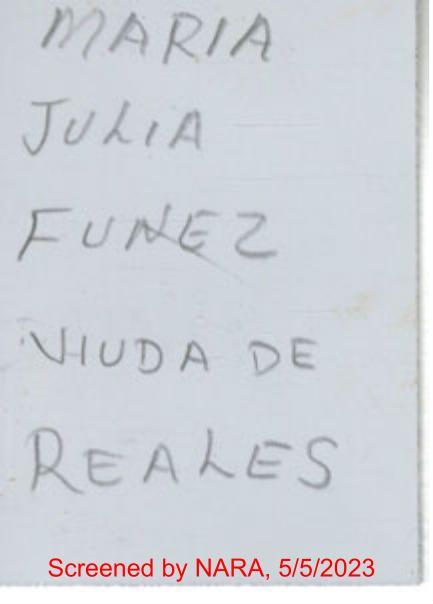 MARIA
JULIA
FUNEZ
VIUDA DE
REALES
Screened by NARA, 5/5/2023